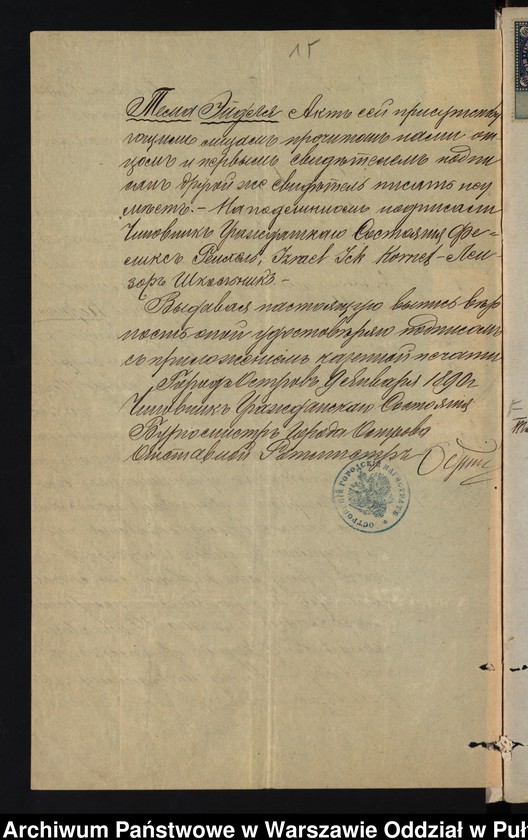 15
Тема Эйдеся. Актъ сей присутству
ющимъ лицамъ прочитанъ нами от
цомъ и первымъ свидѣтелемъ подпи
санъ другой же свидѣтель писать неу
мѣетъ. – На подлинномъ подписали
Чиновникъ Гражданскаго Состоянія Фе-
ликсъ Izrael Ick Kornet – Лей-
зоръ Школьникъ –
Выдавая настоящую выпись вѣр
ность оной удостовѣряю подписомъ
съ приложеніемъ казенной печати
Городъ Островъ Января 1890 г
Чиновникъ Гражданскаго Состоянія
Бургомистръ Города Острова
Отставной Ротмистръ
ГОРОДСКІЙ МАГИСТРАТЪ
Archiwum Państwowe w Warszawie Oddział w Puł